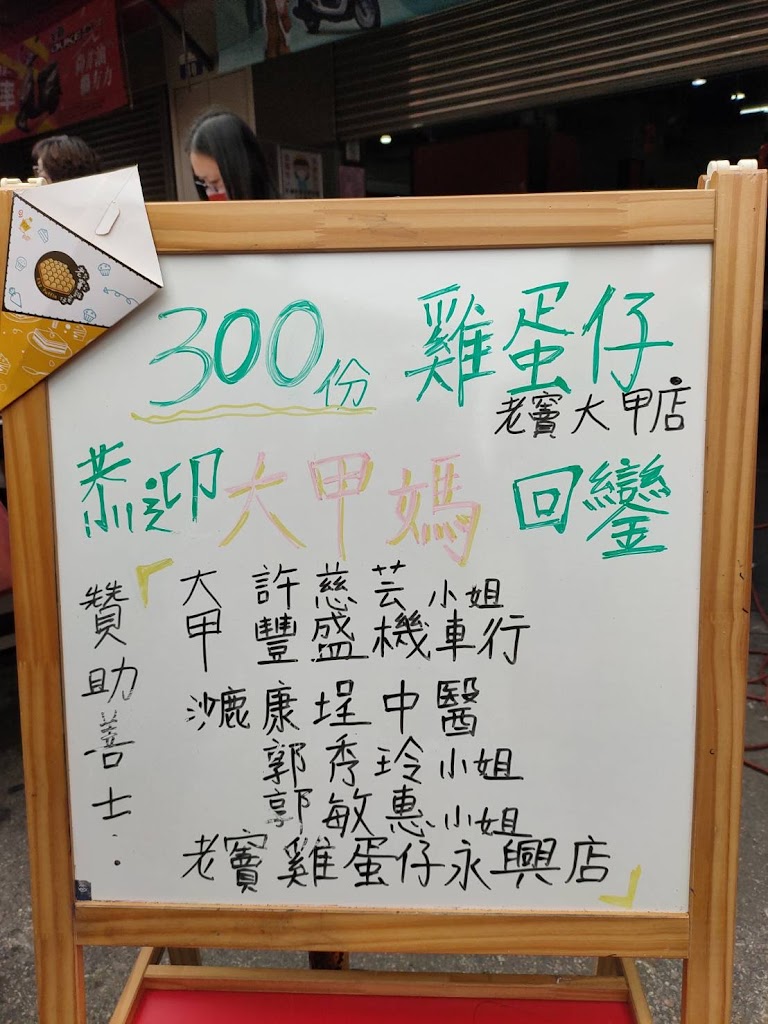 300份 雞蛋仔
老竇大甲店
恭迎大甲媽回鑾
贊助善士：
「大甲 許慈芸小姐
豐盛機車行
沙鹿康埕中醫
郭秀玲小姐
郭敏惠小姐
老竇雞蛋仔永興店」